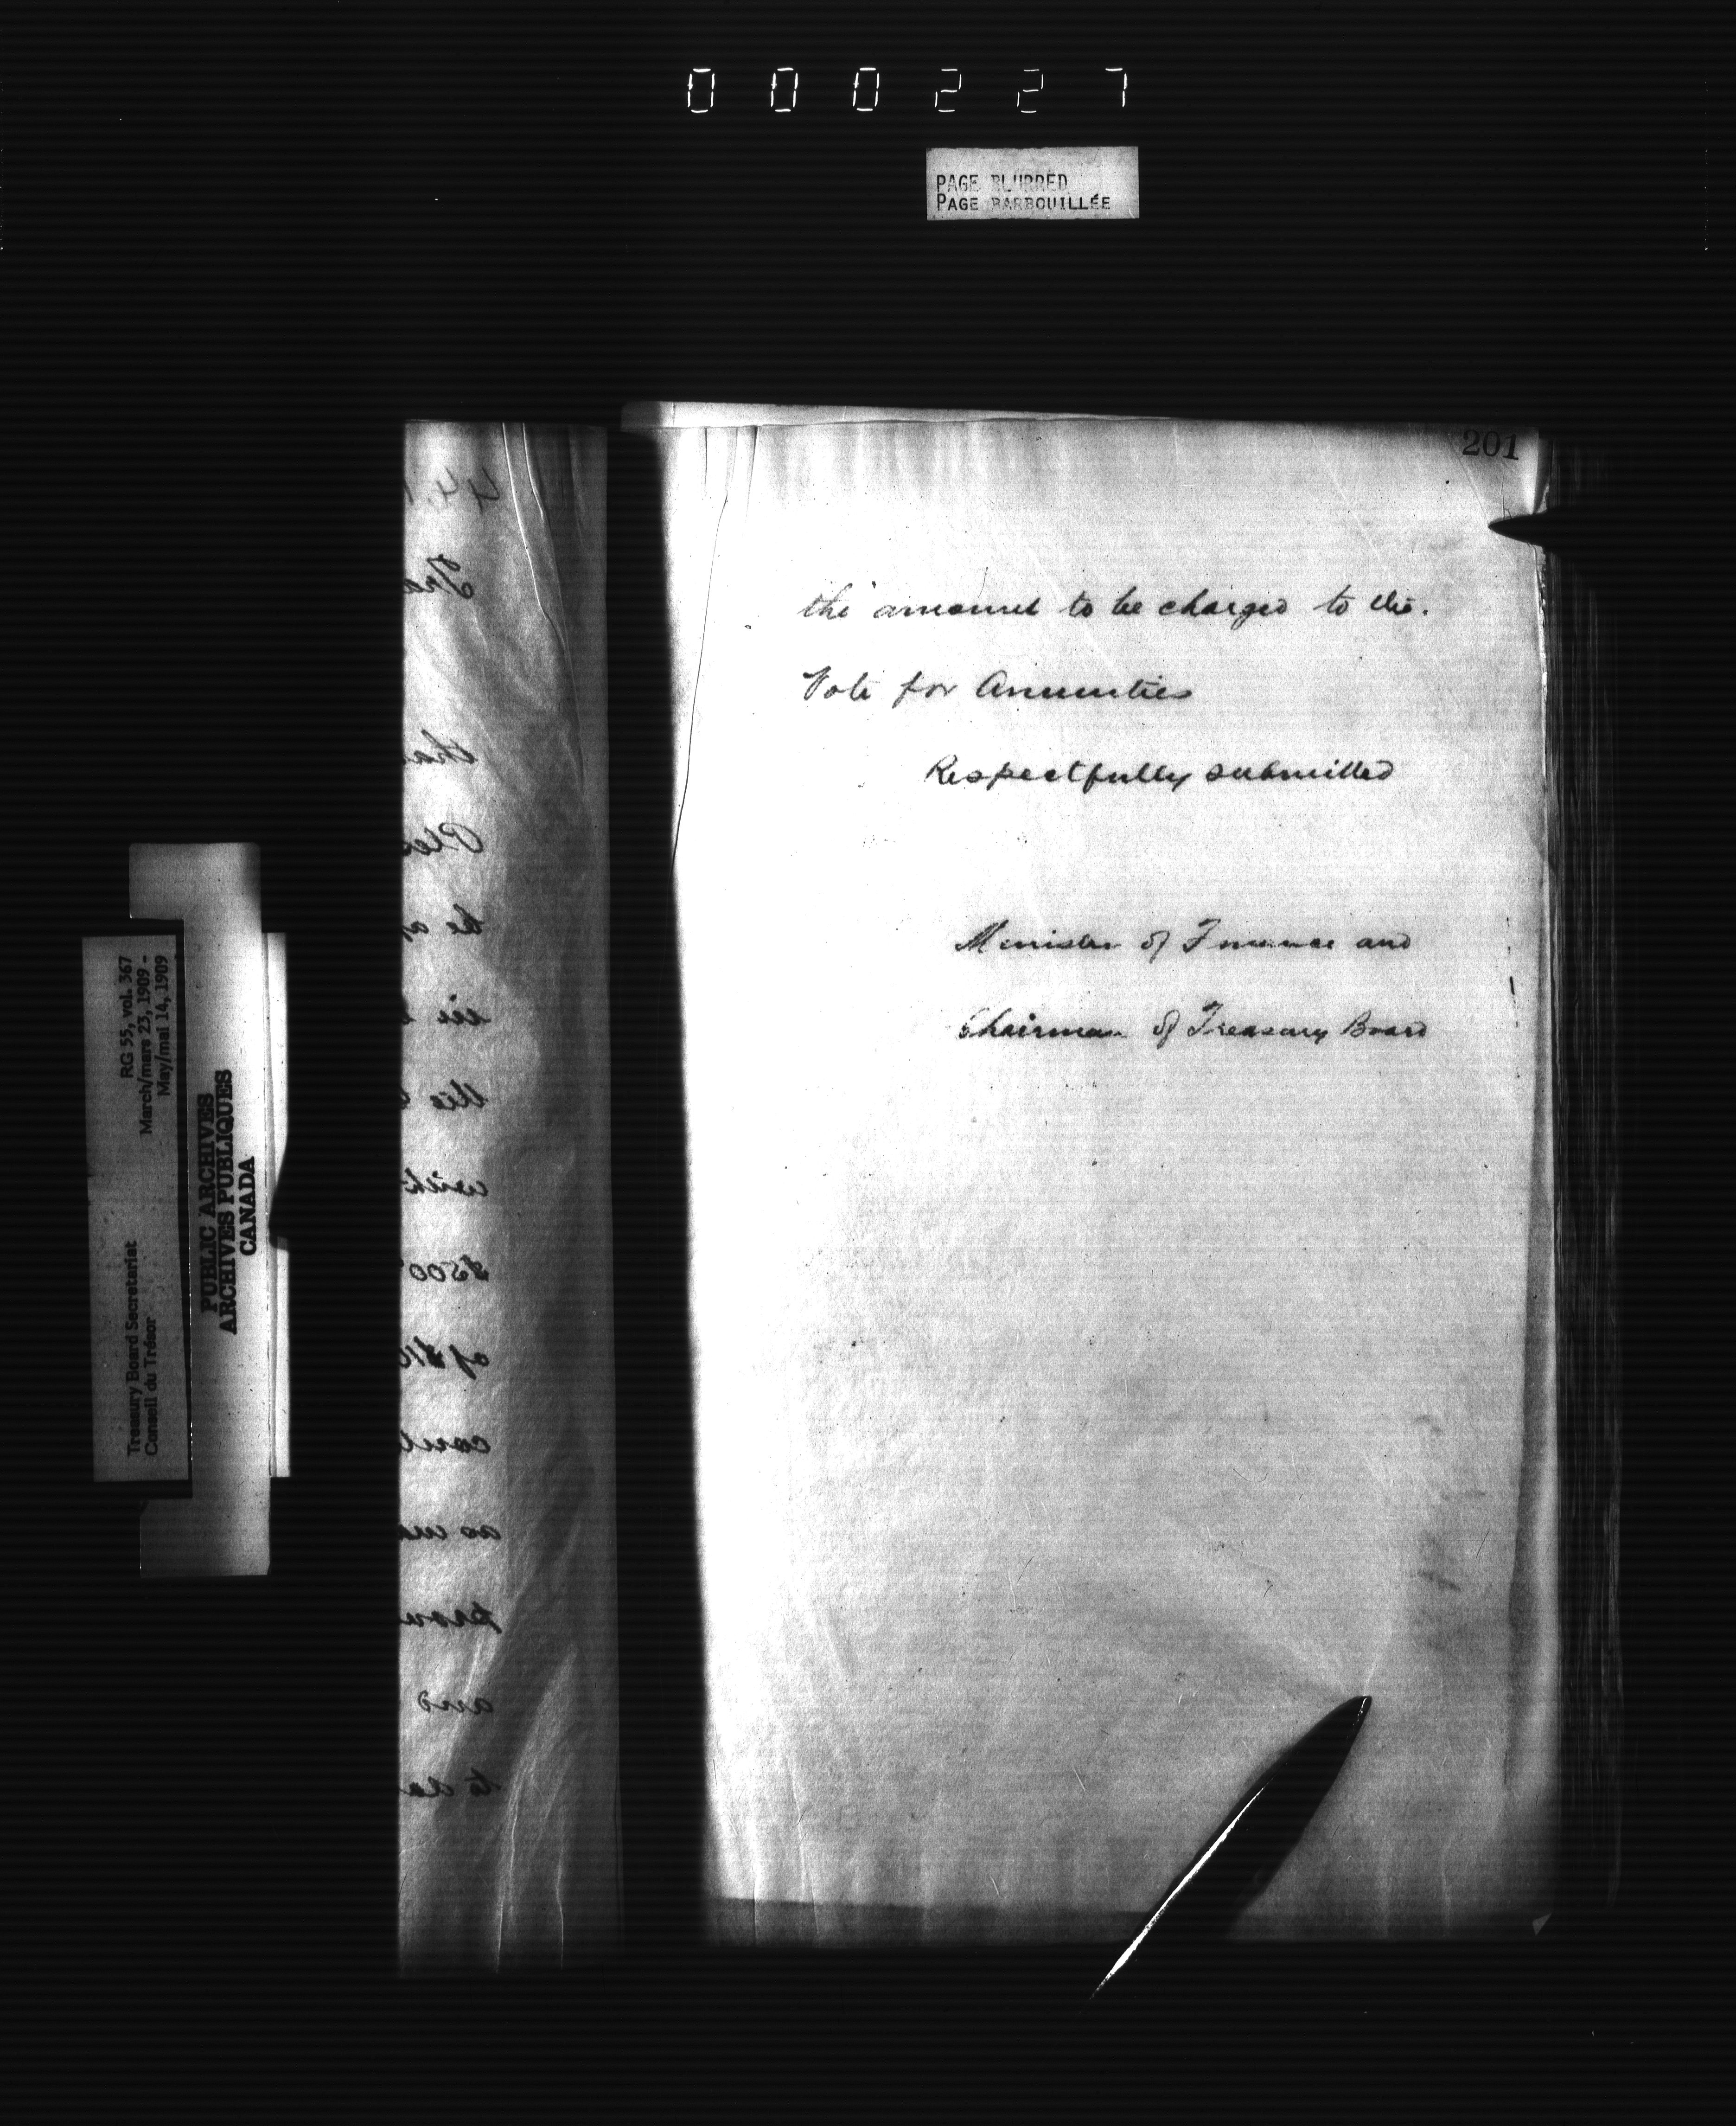 000227
PAGE BLURRED
PAGE BARBOUILLÉE
201
the amount to be charged to the.
Vote for Annuities
Respectfully submitted
Minister of Finance and
Chairman of Treasury Board
Treasury Board Secretariat
Conseil du Trésor
RG 55, vol. 367
March/mars 23, 1909 -
May/mai 14, 1909
PUBLIC ARCHIVES
ARCHIVES PUBLIQUES
CANADA